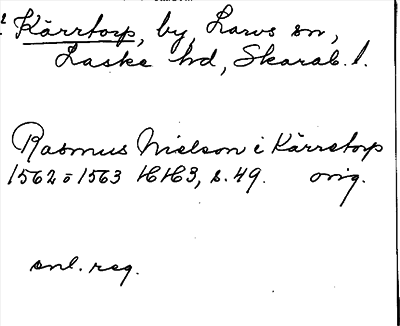 Kärrtorp, by, Larvs sn,
Laske hd, Skarab. l.
Rasmus Nielson i Kärretorp
1562 o 1563 HH3, s. 49. orig.
enl. reg.